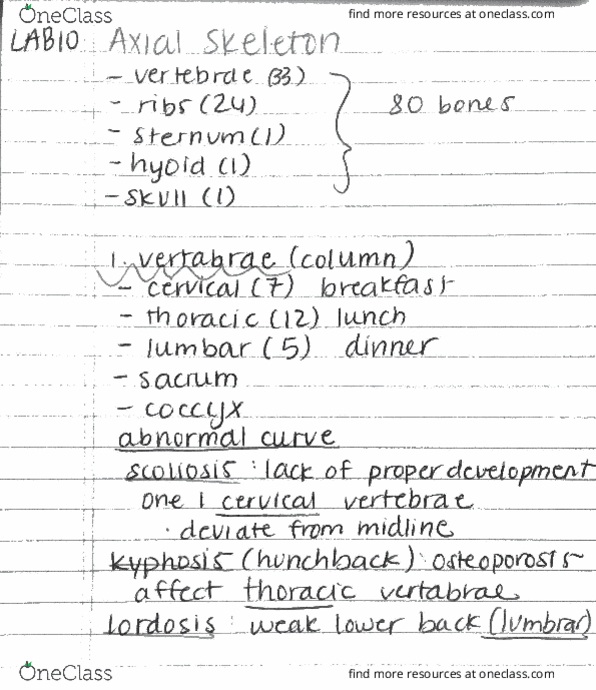 OneClass find more resources at oneclass.com
LAB10 Axial Skeleton
- vertebrae (33)
- ribs (24) 80 bones
- sternum (1)
- hyoid (1)
- skull (1)
1. vertabrae (column)
- cervical (7) breakfast
- thoracic (12) lunch
- lumbar (5) dinner
- sacrum
- coccyx
abnormal curve
scoliosis : lack of proper development
one 1 cervical vertebrae
· deviate from midline
kyphosis (hunchback) : osteoporosis
affect thoracic vertabrae
lordosis : weak lower back (lumbrar)
OneClass find more resources at oneclass.com